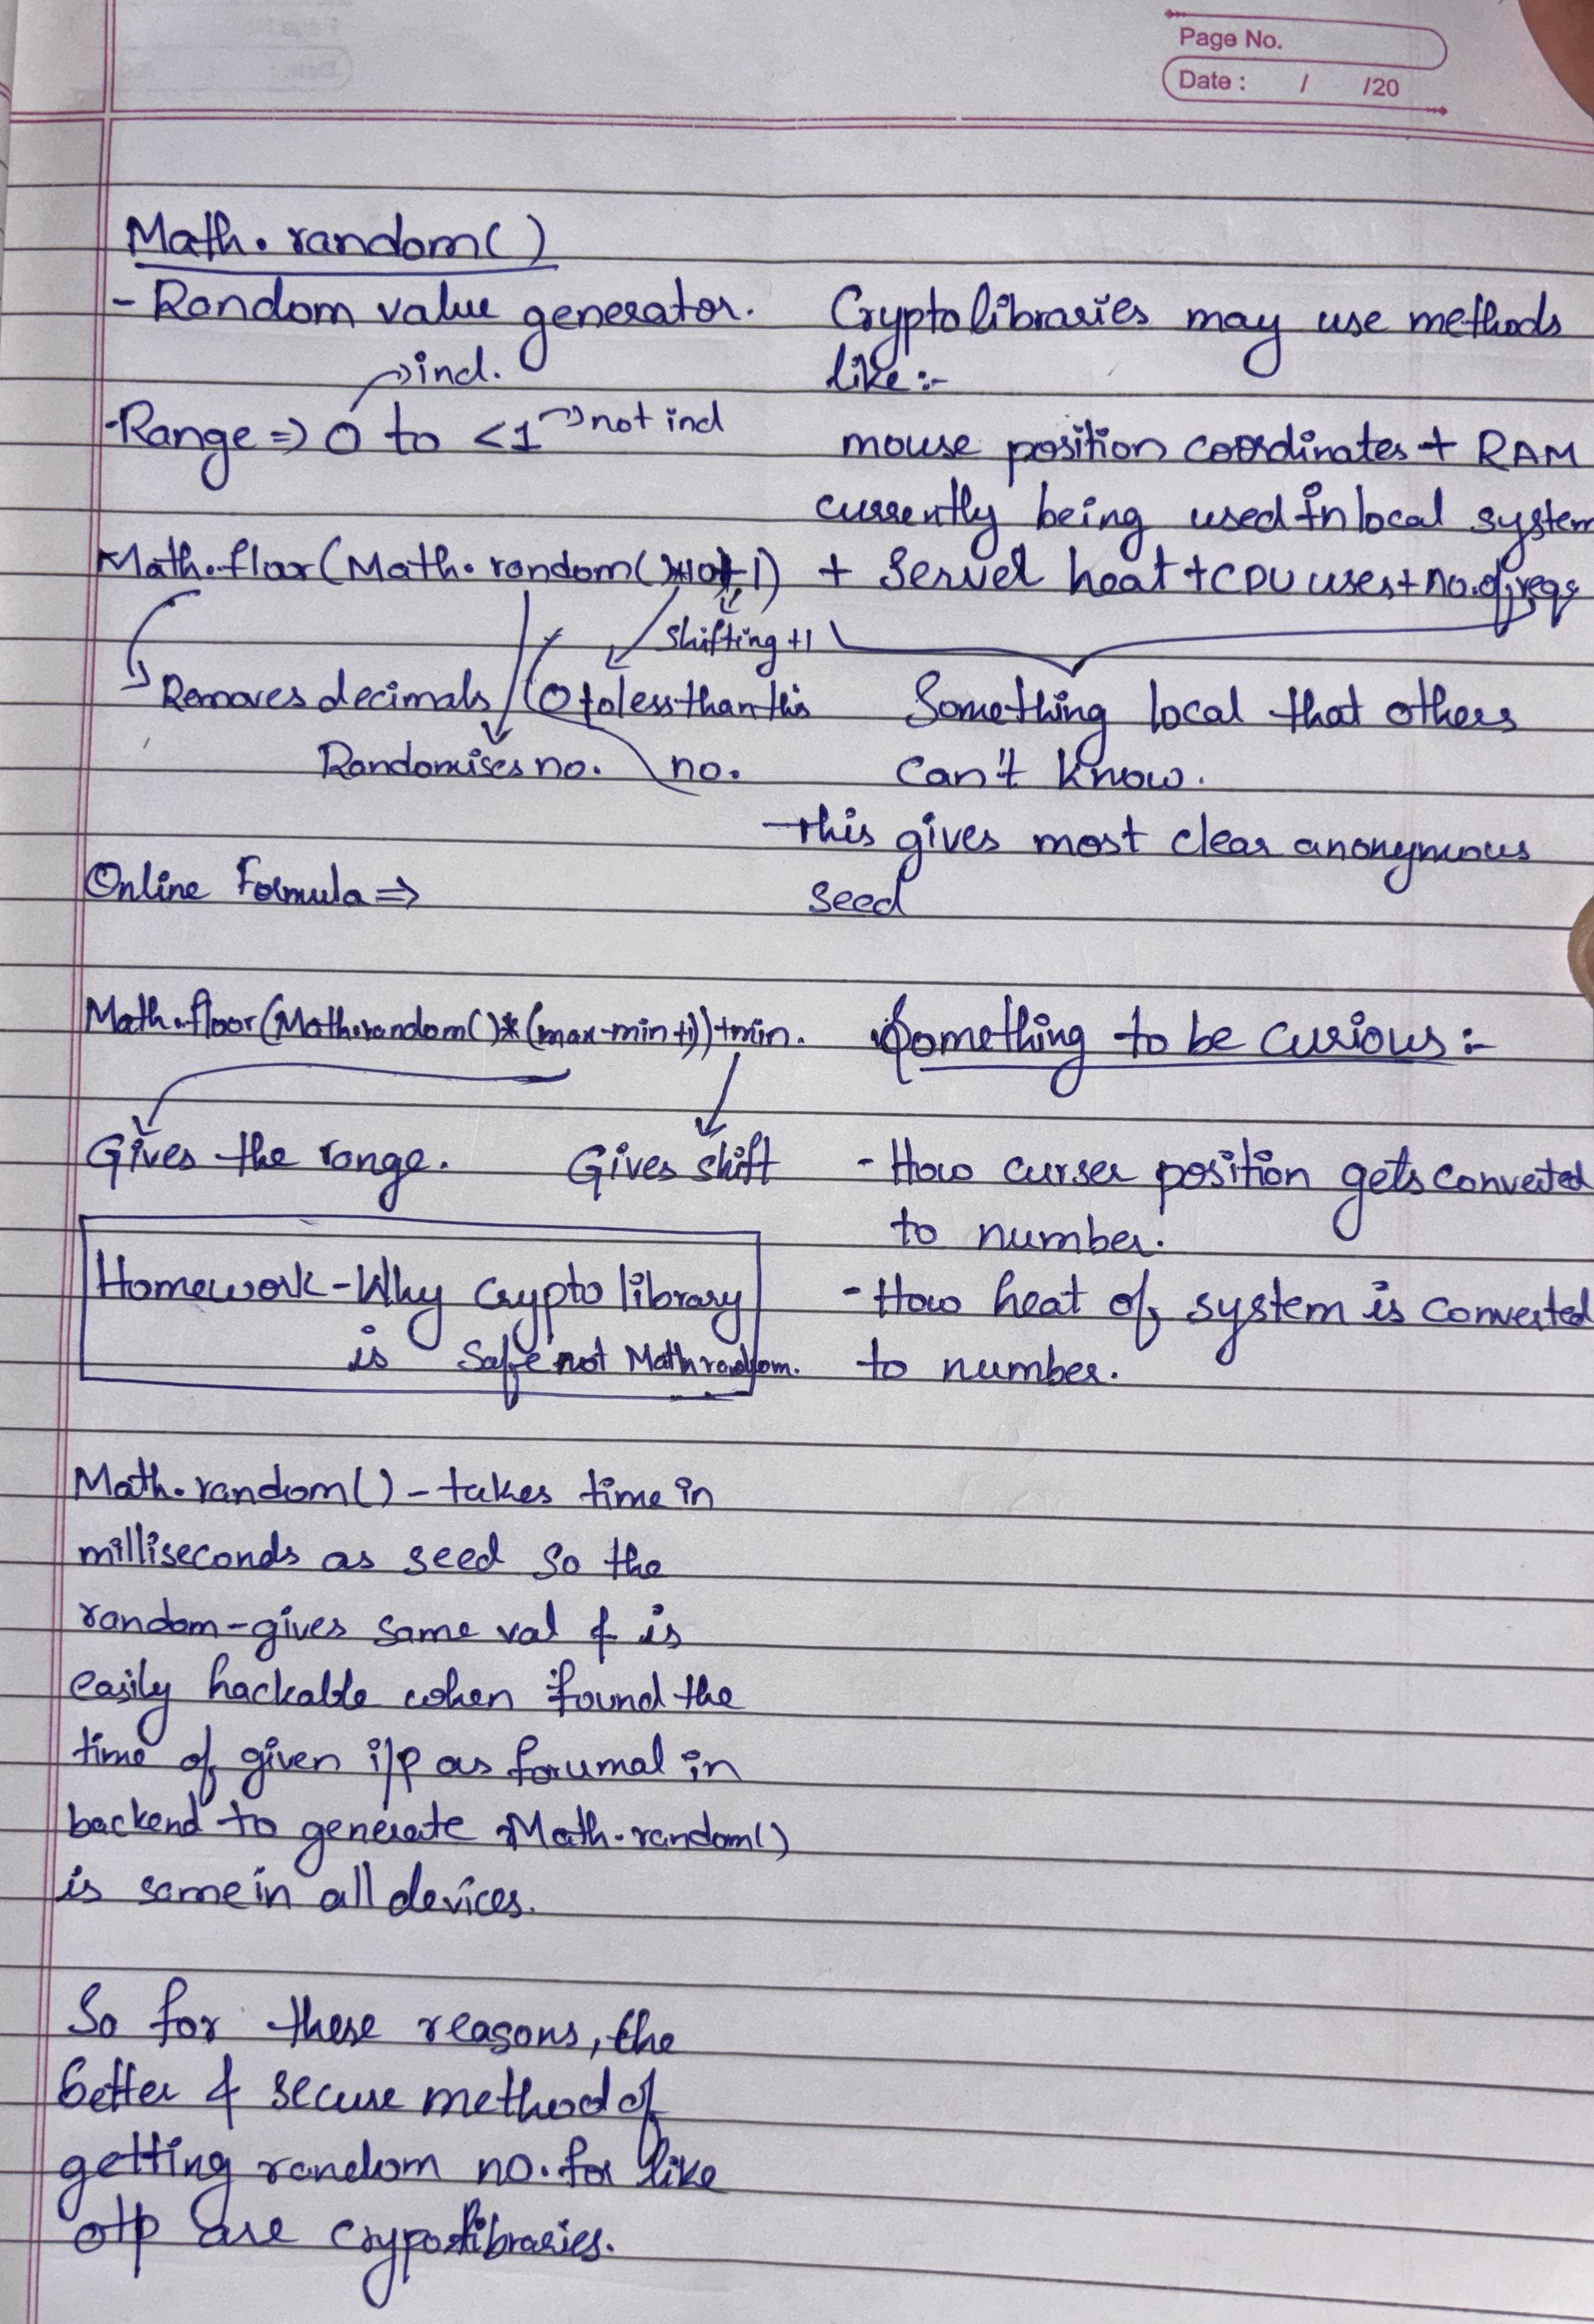 Page No.
Date : / /20
Math.random()
- Random value generator.
incl.
-Range => 0 to <1 not incl
Math.floor(Math.random()*10+1)
shifting +1
Removes decimals
0 to less than this
no.
Randomises no.
Online Formula =>
Math.floor(Math.random()*(max-min+1))+min.
Gives the range. Gives shift
Homework - Why Crypto library
is Safe not Math random.
Math.random() - takes time in
milliseconds as seed so the
random - gives same val & is
easily hackable when found the
time of given i/p as forumal in
backend to generate Math.random()
is same in all devices.
So for these reasons, the
better & secure method of
getting random no. for like
otp are crypotlibraries.
Crypto libraries may use methods
like:-
mouse position coordinates + RAM
currently being used in local system
+ Server heat + CPU uses + no. of reqs
Something local that others
can't know.
This gives most clear anonymous
seed
Something to be curious:-
- How curser position gets converted
to number.
- How heat of system is converted
to number.